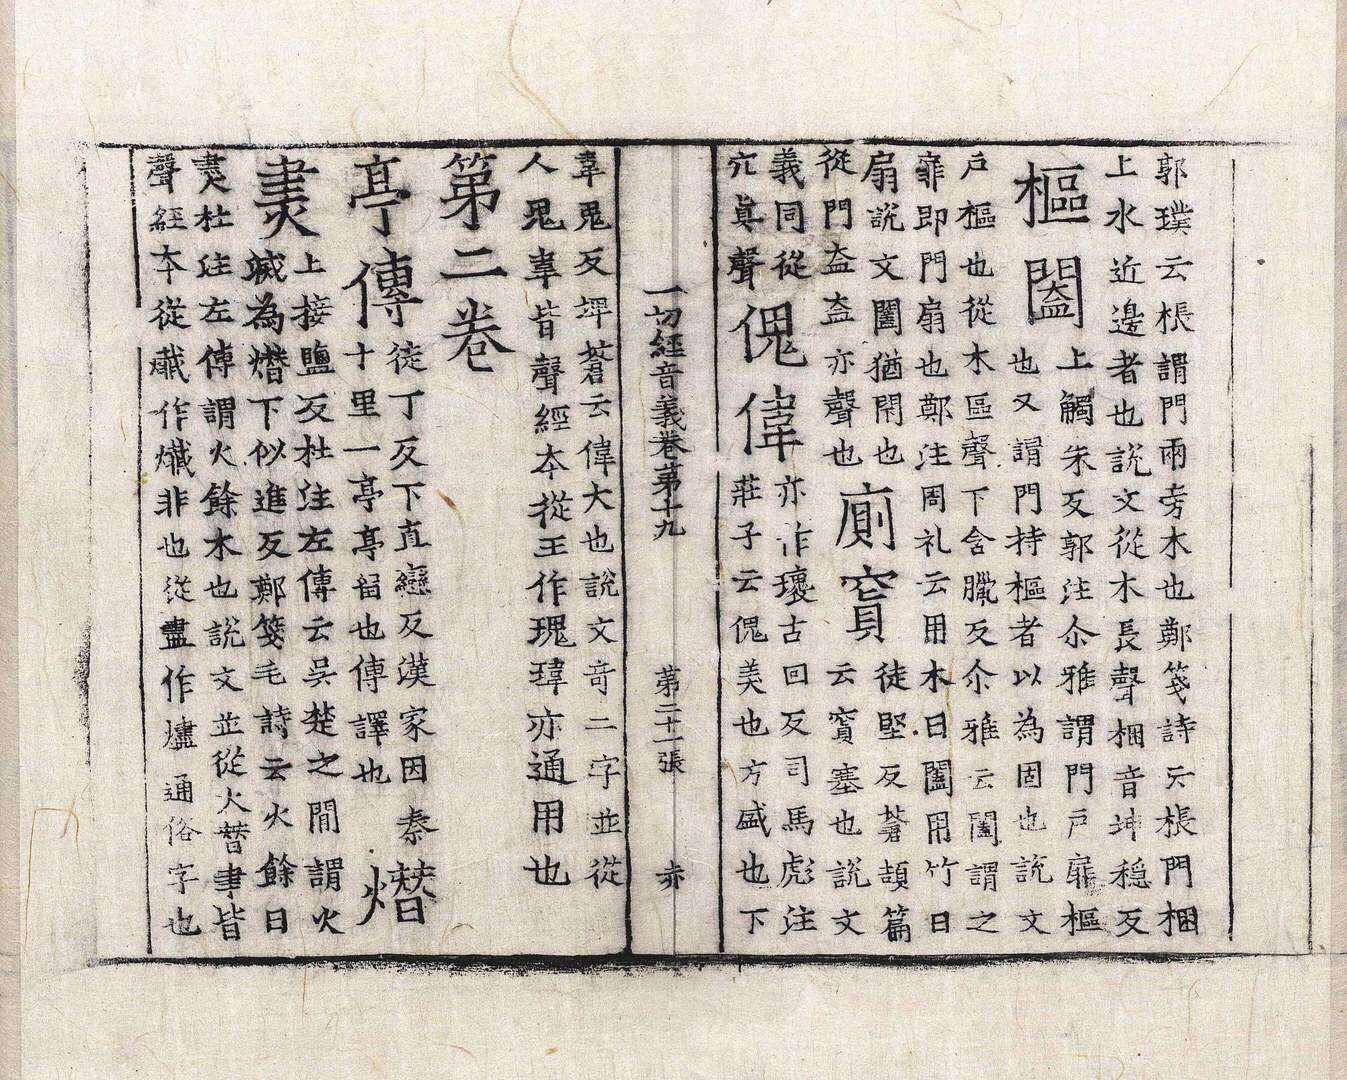 郭璞云棖謂門兩旁木也鄭箋詩云棖門梱
上水近邊者也說文從木長聲梱音坤穩反
樞闔
上觸朱反郭注尒雅謂門戶扉樞
也又謂門持樞者以為固也說文
戶樞也從木區聲下含臘反尒雅云闔謂之
扉即門扇也鄭注周礼云用木曰闔用竹曰
扇說文闔猶閇也
從門盍盍亦聲也
廁窴
徒堅反蒼頡篇
云窴塞也說文
義同從
穴眞聲
傀偉
亦作瓌古回反司馬彪注
莊子云傀美也方盛也下
一切經音義卷第十九 第二十一張 赤
韋鬼反埤蒼云偉大也說文奇二字並從
人鬼韋皆聲經本從王作瑰瑋亦通用也
第二卷
亭傳
徒丁反下直戀反漢家因秦
十里一亭亭留也傳譯也
熸
㶳
上接鹽反杜注左傳云吳楚之間謂火
滅為熸下似進反鄭箋毛詩云火餘曰
㶳杜注左傳謂火餘木也說文並從火朁聿皆
聲經本從韱作非也從盡作燼通俗字也